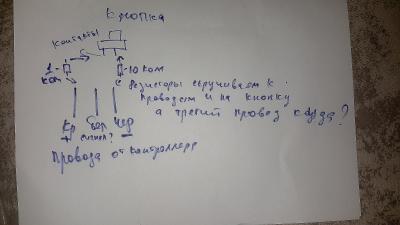 Кнопка
контакты
1
ком
10 ком
Резисторы скручиваем к
проводам и на кнопку
а третий провод куда?
Кр бел чер
+ сигнал? −
Провода от контроллера